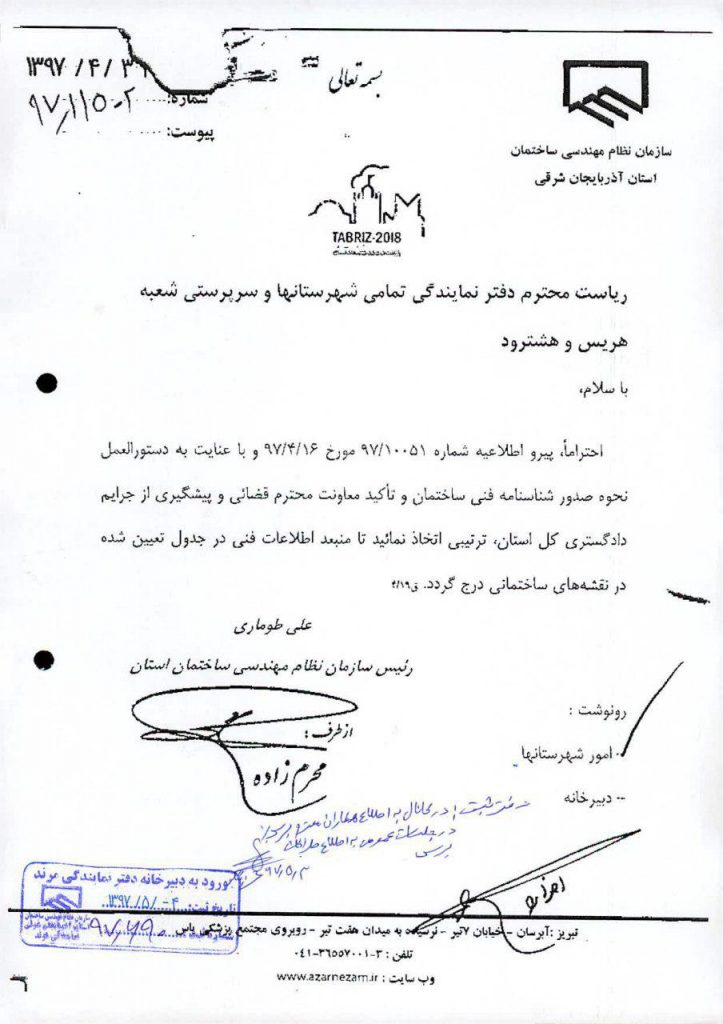 بسمه تعالی
۱۳۹۷/۴/۳۱
شماره: ۹۷/۱۱۵۰۲
پیوست:
سازمان نظام مهندسی ساختمان
استان آذربایجان شرقی
TABRIZ-2018
ریاست محترم دفتر نمایندگی تمامی شهرستانها و سرپرستی شعبه
هریس و هشترود
با سلام،
احتراماً، پیرو اطلاعیه شماره ۹۷/۱۰۰۵۱ مورخ ۹۷/۴/۱۶ و با عنایت به دستورالعمل
نحوه صدور شناسنامه فنی ساختمان و تأکید معاونت محترم قضائی و پیشگیری از جرایم
دادگستری کل استان، ترتیبی اتخاذ نمائید تا منبعد اطلاعات فنی در جدول تعیین شده
در نقشه‌های ساختمانی درج گردد. ق۴/۱۹
علی طوماری
رئیس سازمان نظام مهندسی ساختمان استان
از طرف:
محرم زاده
رونوشت :
- امور شهرستانها
- دبیرخانه
دفتر ثبت، در کانال به اطلاع همکاران محترم
در جلسات عمومی به اطلاع
ورود به دبیرخانه دفتر نمایندگی مرند
تاریخ ثبت: ۱۳۹۷/۵/۰۴
سازمان نظام مهندسی ساختمان
استان آذربایجان شرقی
نمایندگی مرند
تبریز : آبرسان - خیابان ۷تیر - نرسیده به میدان هفت تیر - روبروی مجتمع پزشکی یاس
تلفن : ۳-۰۴۱-۳۶۵۵۷۰۰۱
وب سایت : www.azarnezam.ir